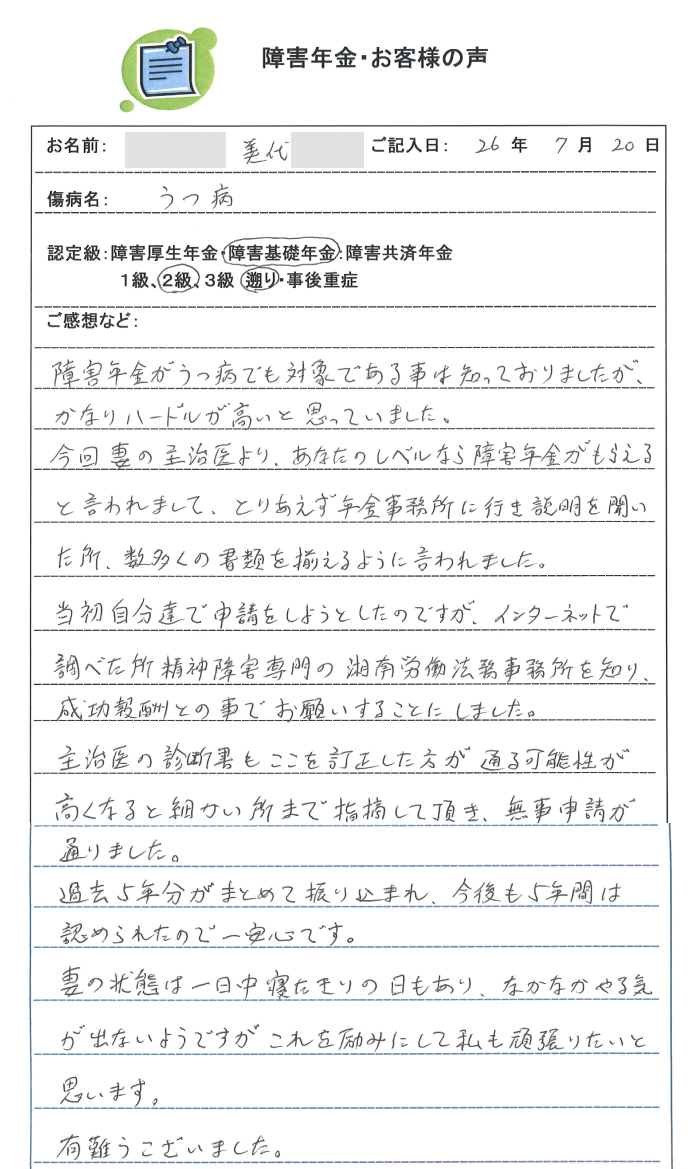 障害年金・お客様の声
お名前： 美代 ご記入日： 26 年 7 月 20 日
傷病名： うつ病
認定級：障害厚生年金・障害基礎年金・障害共済年金
1級、2級、3級 遡り・事後重症
ご感想など：
障害年金がうつ病でも対象である事は知っておりましたが、
かなりハードルが高いと思っていました。
今回妻の主治医より、あなたのレベルなら障害年金がもらえる
と言われまして、とりあえず年金事務所に行き説明を聞い
た所、数多くの書類を揃えるように言われました。
当初自分達で申請をしようとしたのですが、インターネットで
調べた所精神障害専門の湘南労働法務事務所を知り、
成功報酬との事でお願いすることにしました。
主治医の診断書もここを訂正した方が通る可能性が
高くなると細かい所まで指摘して頂き、無事申請が
通りました。
過去5年分がまとめて振り込まれ、今後も5年間は
認められたので一安心です。
妻の状態は一日中寝たきりの日もあり、なかなかやる気
が出ないようですがこれを励みにして私も頑張りたいと
思います。
有難うございました。